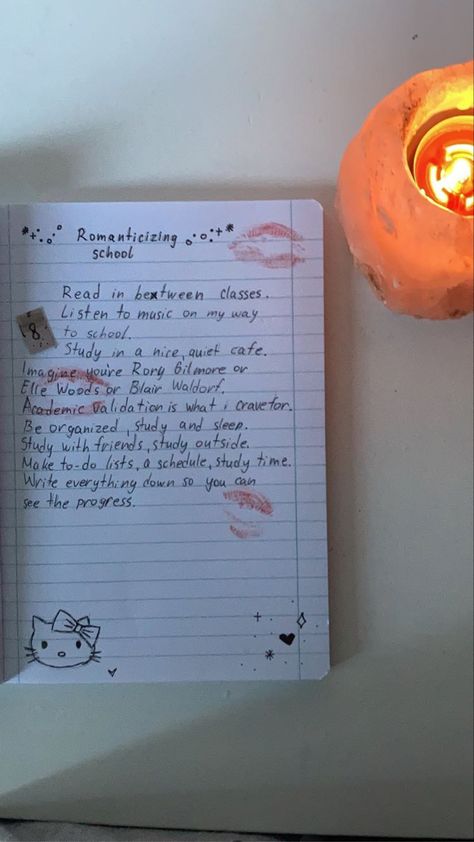 Romanticizing
school
Read in bextween classes.
Listen to music on my way
8 to school.
Study in a nice, quiet cafe.
Imagine you're Rory Gilmore or
Elle Woods or Blair Waldorf.
Academic validation is what i crave for.
Be organized, study and sleep.
Study with friends, study outside.
Make to-do lists, a schedule, study time.
Write everything down so you can
see the progress.